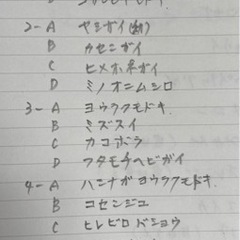 2-A ヤシガイ(幼)
B カセンガイ
C ヒメホネガイ
D ミノオニムシロ
3-A ヨウラクモドキ
B ミズスイ
C カコボラ
D フタモチヘビガイ
4-A ハシナガヨウラクモドキ
B コセンジュ
C ヒレビロドショウ